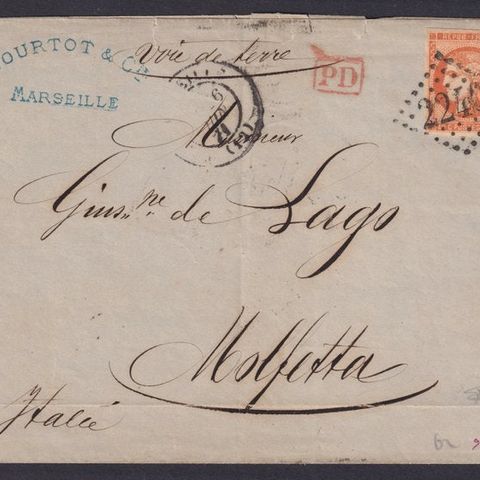 OURTOT & Cie
MARSEILLE
voie de terre
PD
REPUB
224
6
71
Monsieur
Gius.pe de Lago
Molfetta
Italie